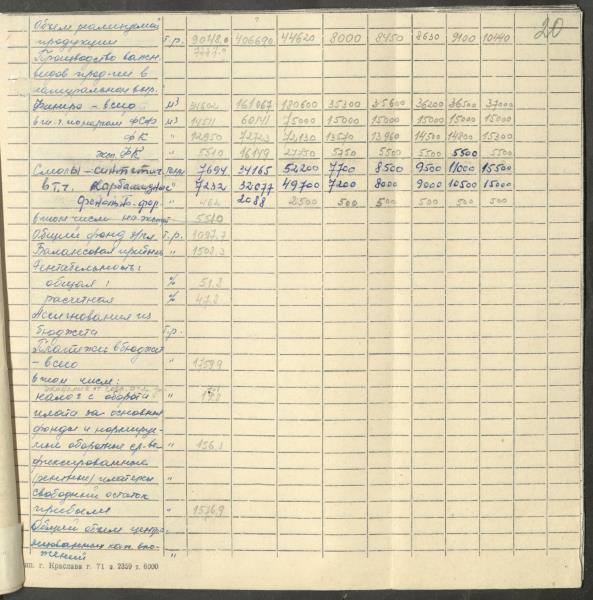 20
Объем реализуемой
продукции т.р. 9048.0 406690 44620 8000 8450 8630 9100 10440
Производство важн.
видов прод-ии в
натуральном выр.
Фанера – всего м³ 31602 161067 180600 35300 35600 36200 36500 37000
в т.ч. номером ФСФ м³ 14511 60141 75000 15000 15000 15000 15000 15000
ФК " 12950 72723 13570 13960 14500 14800 15300
эксп. ФК " 5510 16149 27750 5750 5500 5500 5500 5500
Смолы – синтетич. тонн 7694 34165 52200 7700 8500 9500 11000 15500
в т.ч. карбамидные " 7232 32077 49700 7200 8000 9000 10500 15000
фенольно-фор. " 462 2088 2500 500 500 500 500 500
в том числе на экспорт 5510
Общий фонд з/пл. т.р. 1097.7
Балансовая прибыль " 1502.3
Рентабельность:
общая: % 51.2
расчетная % 47.2
Ассигнования из
бюджета т.р.
Платежи в бюджет
– всего " 1759.9
в том числе:
налог с оборота "
плата за основные
фонды и нормируе-
мые оборотные ср-ва " 156.1
фиксированные
(рентные) платежи "
свободный остаток
прибыли " 1576.9
Общий объем центра-
лизованных кап. вло-
жений "
г. Краслава г. 71 з. 2359 т. 6000